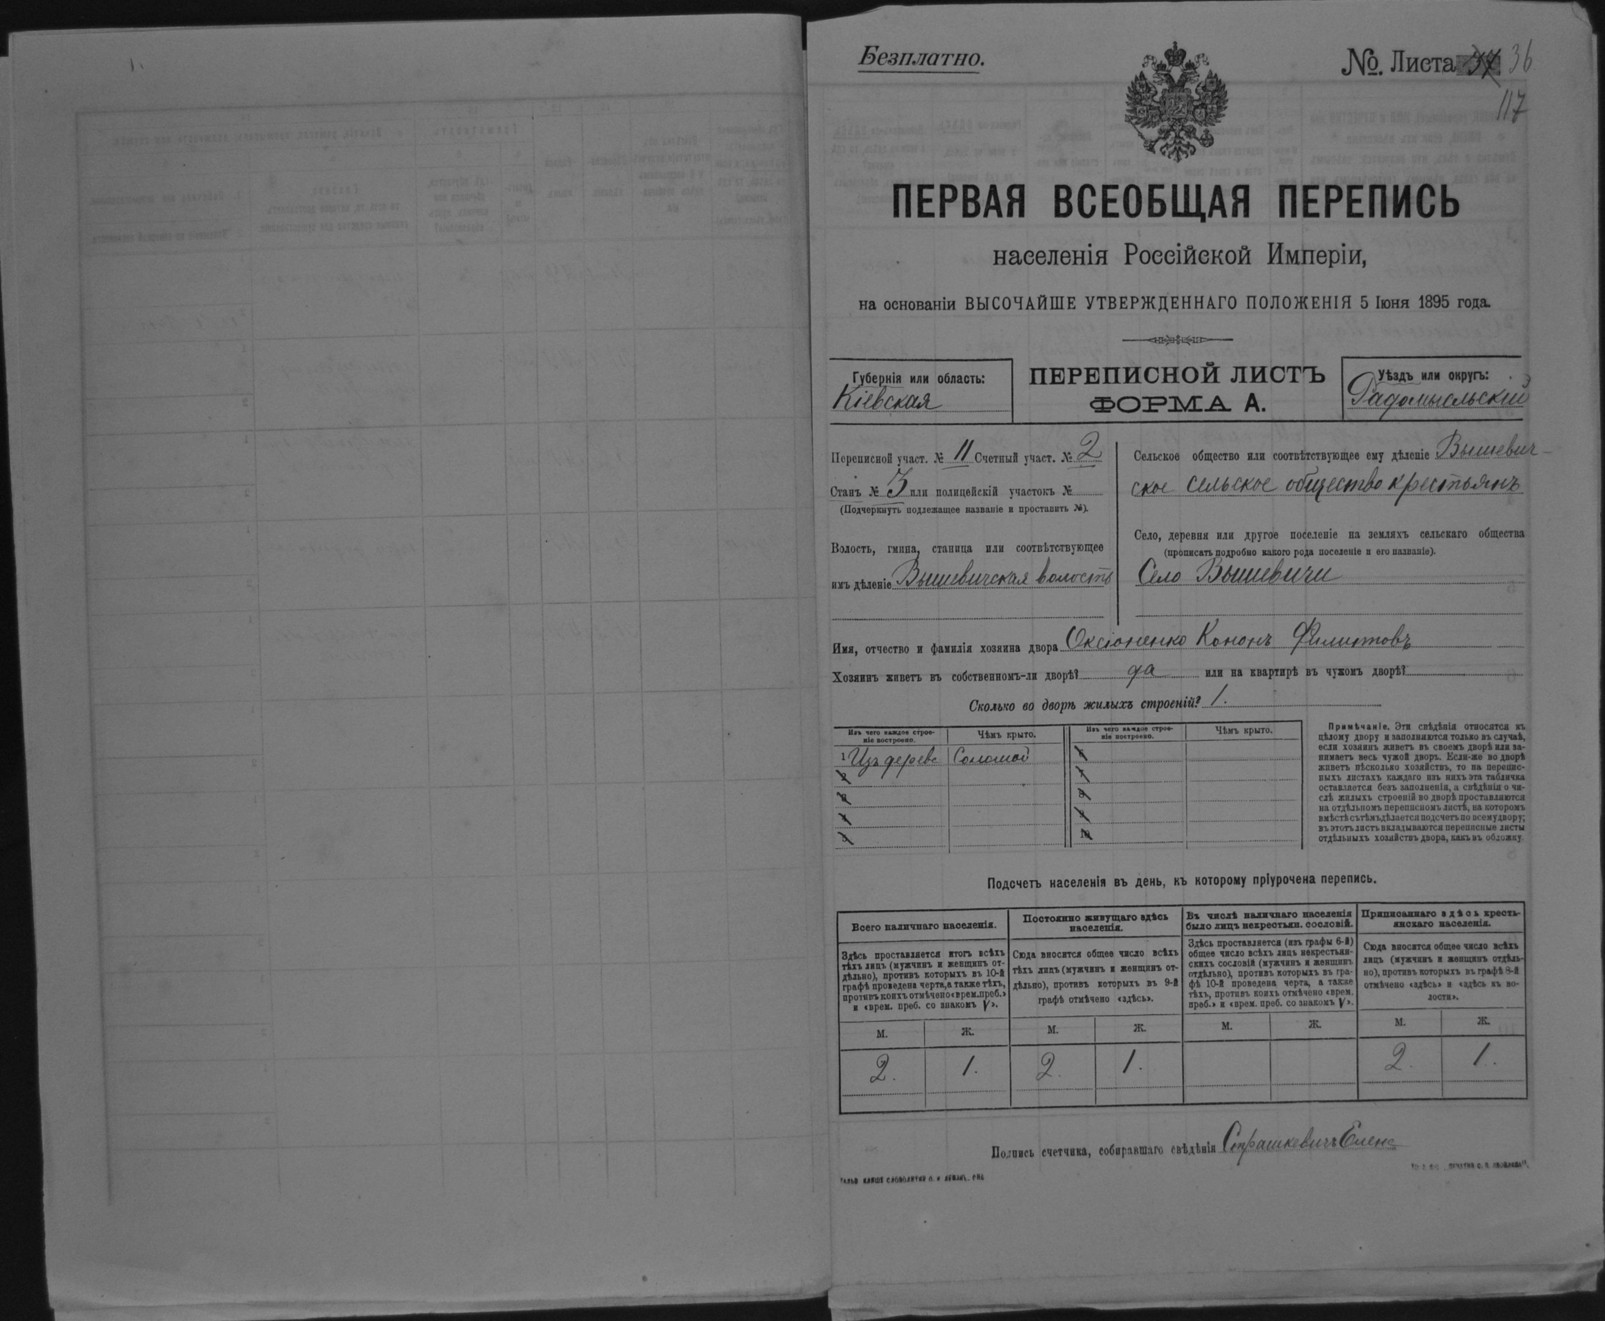 Безплатно.
№. Листа 36
117
ПЕРВАЯ ВСЕОБЩАЯ ПЕРЕПИСЬ
населенія Россійской Имперіи,
на основаніи ВЫСОЧАЙШЕ УТВЕРЖДЕННАГО ПОЛОЖЕНІЯ 5 Іюня 1895 года.
Губернія или область:
Кіевская
ПЕРЕПИСНОЙ ЛИСТЪ
ФОРМА А.
Уѣздъ или округъ:
Радомысльскій
Переписной участ. № 11 Счетный участ. № 2
Станъ № 3 или полицейскій участокъ №
(Подчеркнуть подлежащее названіе и проставить №).
Волость, гмина, станица или соотвѣтствующее
имъ дѣленіе Вышевичская волость
Сельское общество или соотвѣтствующее ему дѣленіе Вышевич-
ское сельское общество крестьянъ
Село, деревня или другое поселеніе на земляхъ сельскаго общества
(прописать подробно какого рода поселеніе и его названіе).
Село Вышевичи
Имя, отчество и фамилія хозяина двора Оксіоненко Кононъ Филиповъ
Хозяинъ живетъ въ собственномъ-ли дворѣ? да или на квартирѣ въ чужомъ дворѣ?
Сколько во дворѣ жилыхъ строеній? 1.
Изъ чего каждое строе-
ніе построено.
Чѣмъ крыто.
1 Изъ дерева Соломой
2
3
4
5
Изъ чего каждое строе-
ніе построено.
Чѣмъ крыто.
6
7
8
9
10
Примѣчаніе. Эти свѣдѣнія относятся къ
цѣлому двору и заполняются только въ случаѣ,
если хозяинъ живетъ въ своемъ дворѣ или за-
нимаетъ весь чужой дворъ. Если-же во дворѣ
живетъ нѣсколько хозяйствъ, то на перепис-
ныхъ листахъ каждаго изъ нихъ эта табличка
оставляется безъ заполненія, а свѣдѣнія о чи-
слѣ жилыхъ строеній во дворѣ проставляются
на отдѣльномъ переписномъ листѣ, на которомъ
вмѣстѣ съ тѣмъ дѣлается подсчетъ по всему двору;
въ этотъ листъ вкладываются переписные листы
отдѣльныхъ хозяйствъ двора, какъ въ обложку.
Подсчетъ населенія въ день, къ которому пріурочена перепись.
Всего наличнаго населенія.
Здѣсь проставляется итогъ всѣхъ
тѣхъ лицъ (мужчинъ и женщинъ от-
дѣльно), противъ которыхъ въ 10-й
графѣ проведена черта, а также тѣхъ,
противъ коихъ отмѣчено «врем. преб.»
и «врем. преб. со знакомъ V».
М. Ж.
2. 1.
Постоянно живущаго здѣсь
населенія.
Сюда вносится общее число всѣхъ
тѣхъ лицъ (мужчинъ и женщинъ от-
дѣльно), противъ которыхъ въ 9-й
графѣ отмѣчено «здѣсь».
М. Ж.
2. 1.
Въ числѣ наличнаго населенія
было лицъ некрестьян. сословій.
Здѣсь проставляется (изъ графы 6-й)
общее число всѣхъ лицъ некрестьян-
скихъ сословій (мужчинъ и женщинъ
отдѣльно), противъ которыхъ въ гра-
фѣ 10-й проведена черта, а также
тѣхъ, противъ коихъ отмѣчено «врем.
преб.» и «врем. преб. со знакомъ V».
М. Ж.
Приписаннаго здѣсь кресть-
янскаго населенія.
Сюда вносится общее число всѣхъ
лицъ (мужчинъ и женщинъ отдѣль-
но), противъ которыхъ въ графѣ 8-й
отмѣчено «здѣсь» и «здѣсь къ во-
лости».
М. Ж.
2. 1.
Подпись счетчика, собиравшаго свѣдѣнія Страшкевичъ Елена